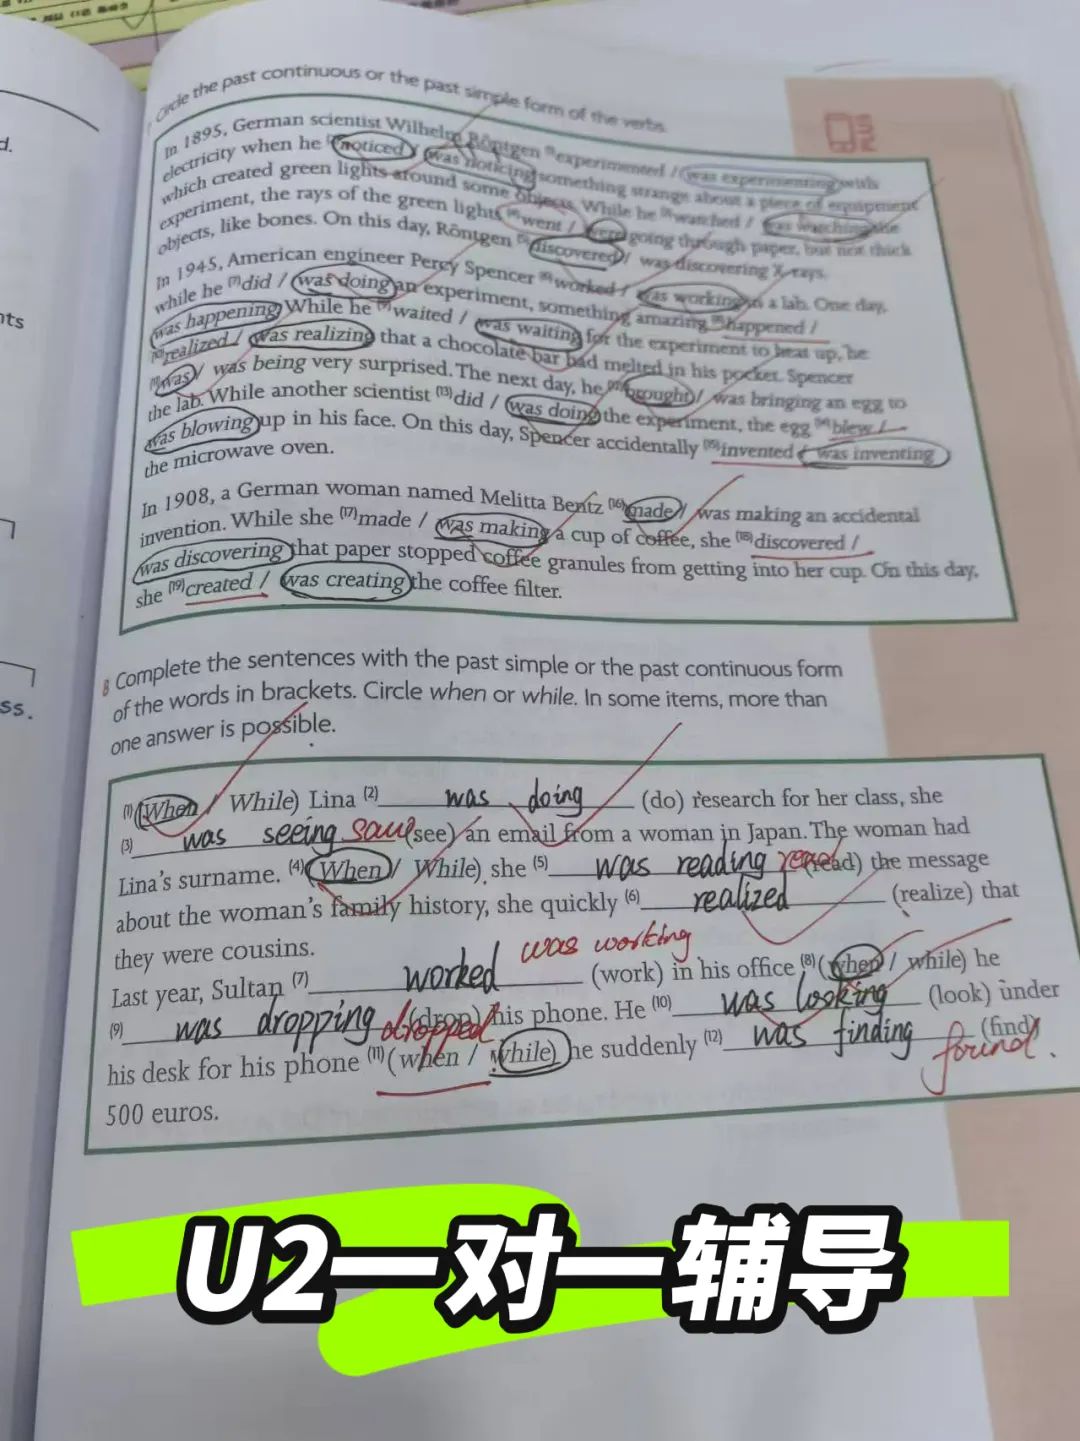 Circle the past continuous or the past simple form of the verbs.
In 1895, German scientist Wilhelm Röntgen experimented / was experimenting with
electricity when he noticed / was noticing something strange about a piece of equipment
which created green lights around some objects. While he watched / was watching the
experiment, the rays of the green lights went / were going through paper, but not thick
objects, like bones. On this day, Röntgen discovered / was discovering X-rays.
In 1945, American engineer Percy Spencer (6)worked / was working in a lab. One day,
while he (7)did / was doing an experiment, something amazing (8)happened /
was happening. While he (9)waited / was waiting for the experiment to heat up, he
(10)realized / was realizing that a chocolate bar had melted in his pocket. Spencer
(11)was / was being very surprised. The next day, he (12)brought / was bringing an egg to
the lab. While another scientist (13)did / was doing the experiment, the egg (14)blew /
was blowing up in his face. On this day, Spencer accidentally (15)invented / was inventing
the microwave oven.
In 1908, a German woman named Melitta Bentz (16)made / was making an accidental
invention. While she (17)made / was making a cup of coffee, she (18)discovered /
was discovering that paper stopped coffee granules from getting into her cup. On this day,
she (19)created / was creating the coffee filter.
8 Complete the sentences with the past simple or the past continuous form
of the words in brackets. Circle when or while. In some items, more than
one answer is possible.
(1)(When / While) Lina (2) was doing (do) research for her class, she
(3) was seeing saw (see) an email from a woman in Japan. The woman had
Lina's surname. (4)(When / While) she (5) was reading read (read) the message
about the woman's family history, she quickly (6) realized (realize) that
they were cousins.
was working
Last year, Sultan (7) worked (work) in his office (8)(when / while) he
(9) was dropping dropped (drop) his phone. He (10) was looking (look) under
his desk for his phone (11)(when / while) he suddenly (12) was finding (find)
found.
500 euros.
ss.
U2一对一辅导